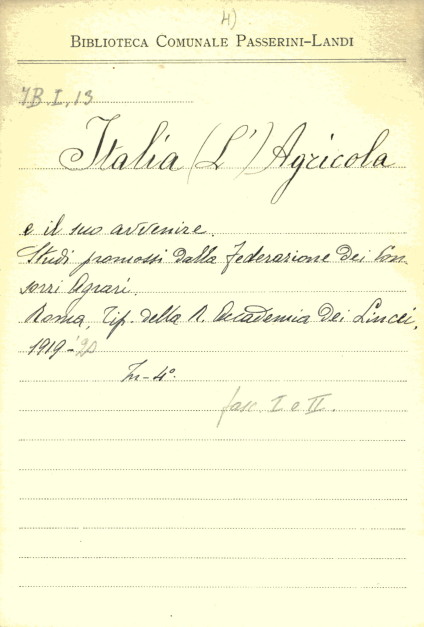 4)
BIBLIOTECA COMUNALE PASSERINI-LANDI
7B.I.13
Italia (L') Agricola
e il suo avvenire.
Studi promossi dalla Federazione dei Con-
sorzi Agrari.
Roma, Tip. della R. Accademia dei Lincei,
1919-20
In-4°.
fasc. I e II.